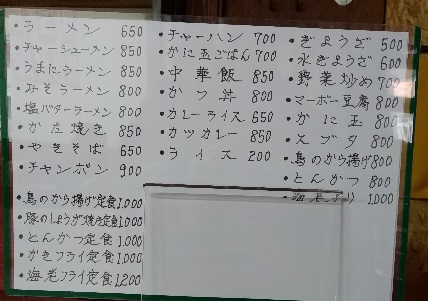 ・ラーメン 650
・チャーシューメン 850
・うまにラーメン 850
・みそラーメン 800
・塩バターラーメン 800
・かた焼き 850
・やきそば 650
・チャンポン 900
・鳥のから揚げ定食 1,000
・豚のしょうが焼き定食 1,000
・とんかつ定食 1,000
・かきフライ定食 1,000
・海老フライ定食 1,200
・チャーハン 700
・かに玉ごはん 700
・中華飯 850
・かつ丼 800
・カレーライス 650
・カツカレー 850
・ライス 200
・ぎょうざ 500
・水ぎょうざ 600
・野菜炒め 700
・マーボー豆腐 800
・かに玉 800
・スブタ 800
・鳥のから揚げ 800
・とんかつ 800
・海老 1,000